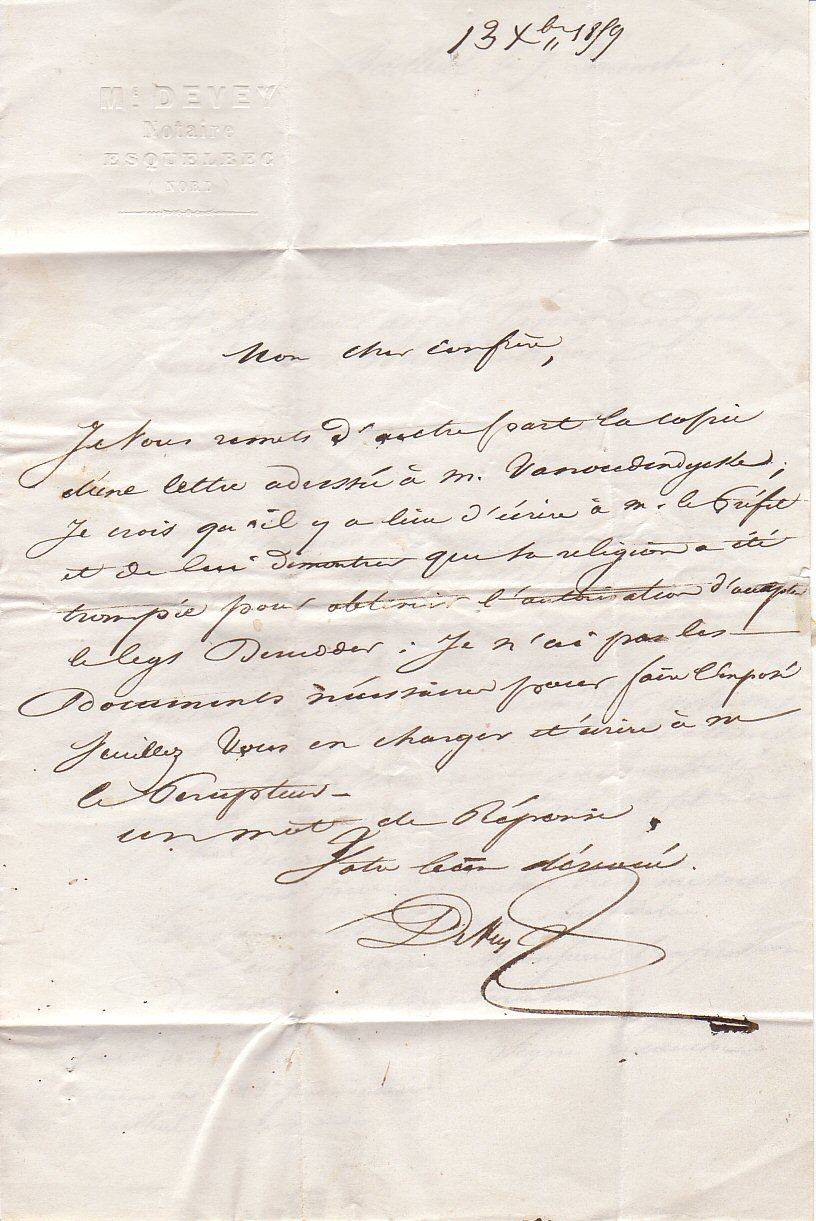 13 Xbre 1859
Me DEVEY
Notaire
ESQUELBEC
(NORD)
Mon cher confrère,
Je Vous remets d'autre part la copie
d'une lettre adressée à M. Vanoudendycke,
Je crois qu'il y a lieu d'écrire à Mr le Préfet
et de lui démontrer que sa religion a été
trompée pour obtenir l'autorisation d'accepter
le legs : Je n'ai pas les
Documents nécessaires pour faire l'exposé
Veuillez Vous en charger et écrire à M
le Percepteur -
un mot de Réponse.
Votre bien dévoué.
Devey